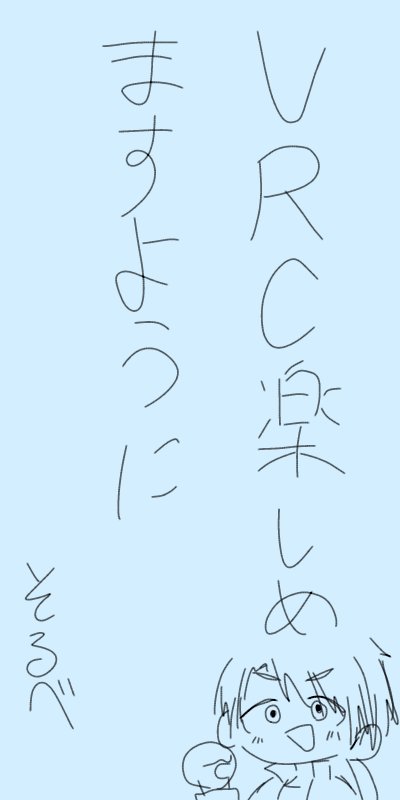 VRC楽しめ
ますように
そるべ